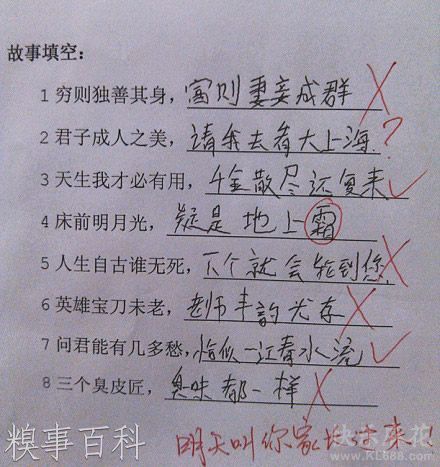 故事填空：
1 穷则独善其身，富则妻妾成群
2 君子成人之美，请我去看大上海.?
3 天生我才必有用，千金散尽还复来
4 床前明月光，疑是地上霜
5 人生自古谁无死，下个就会轮到您
6 英雄宝刀未老，老师丰韵尤存
7 问君能有几多愁，恰似一江春水流
8 三个臭皮匠，臭味都一样
明天叫你家长来!!
糗事百科
快乐麻花
www.KL688.com